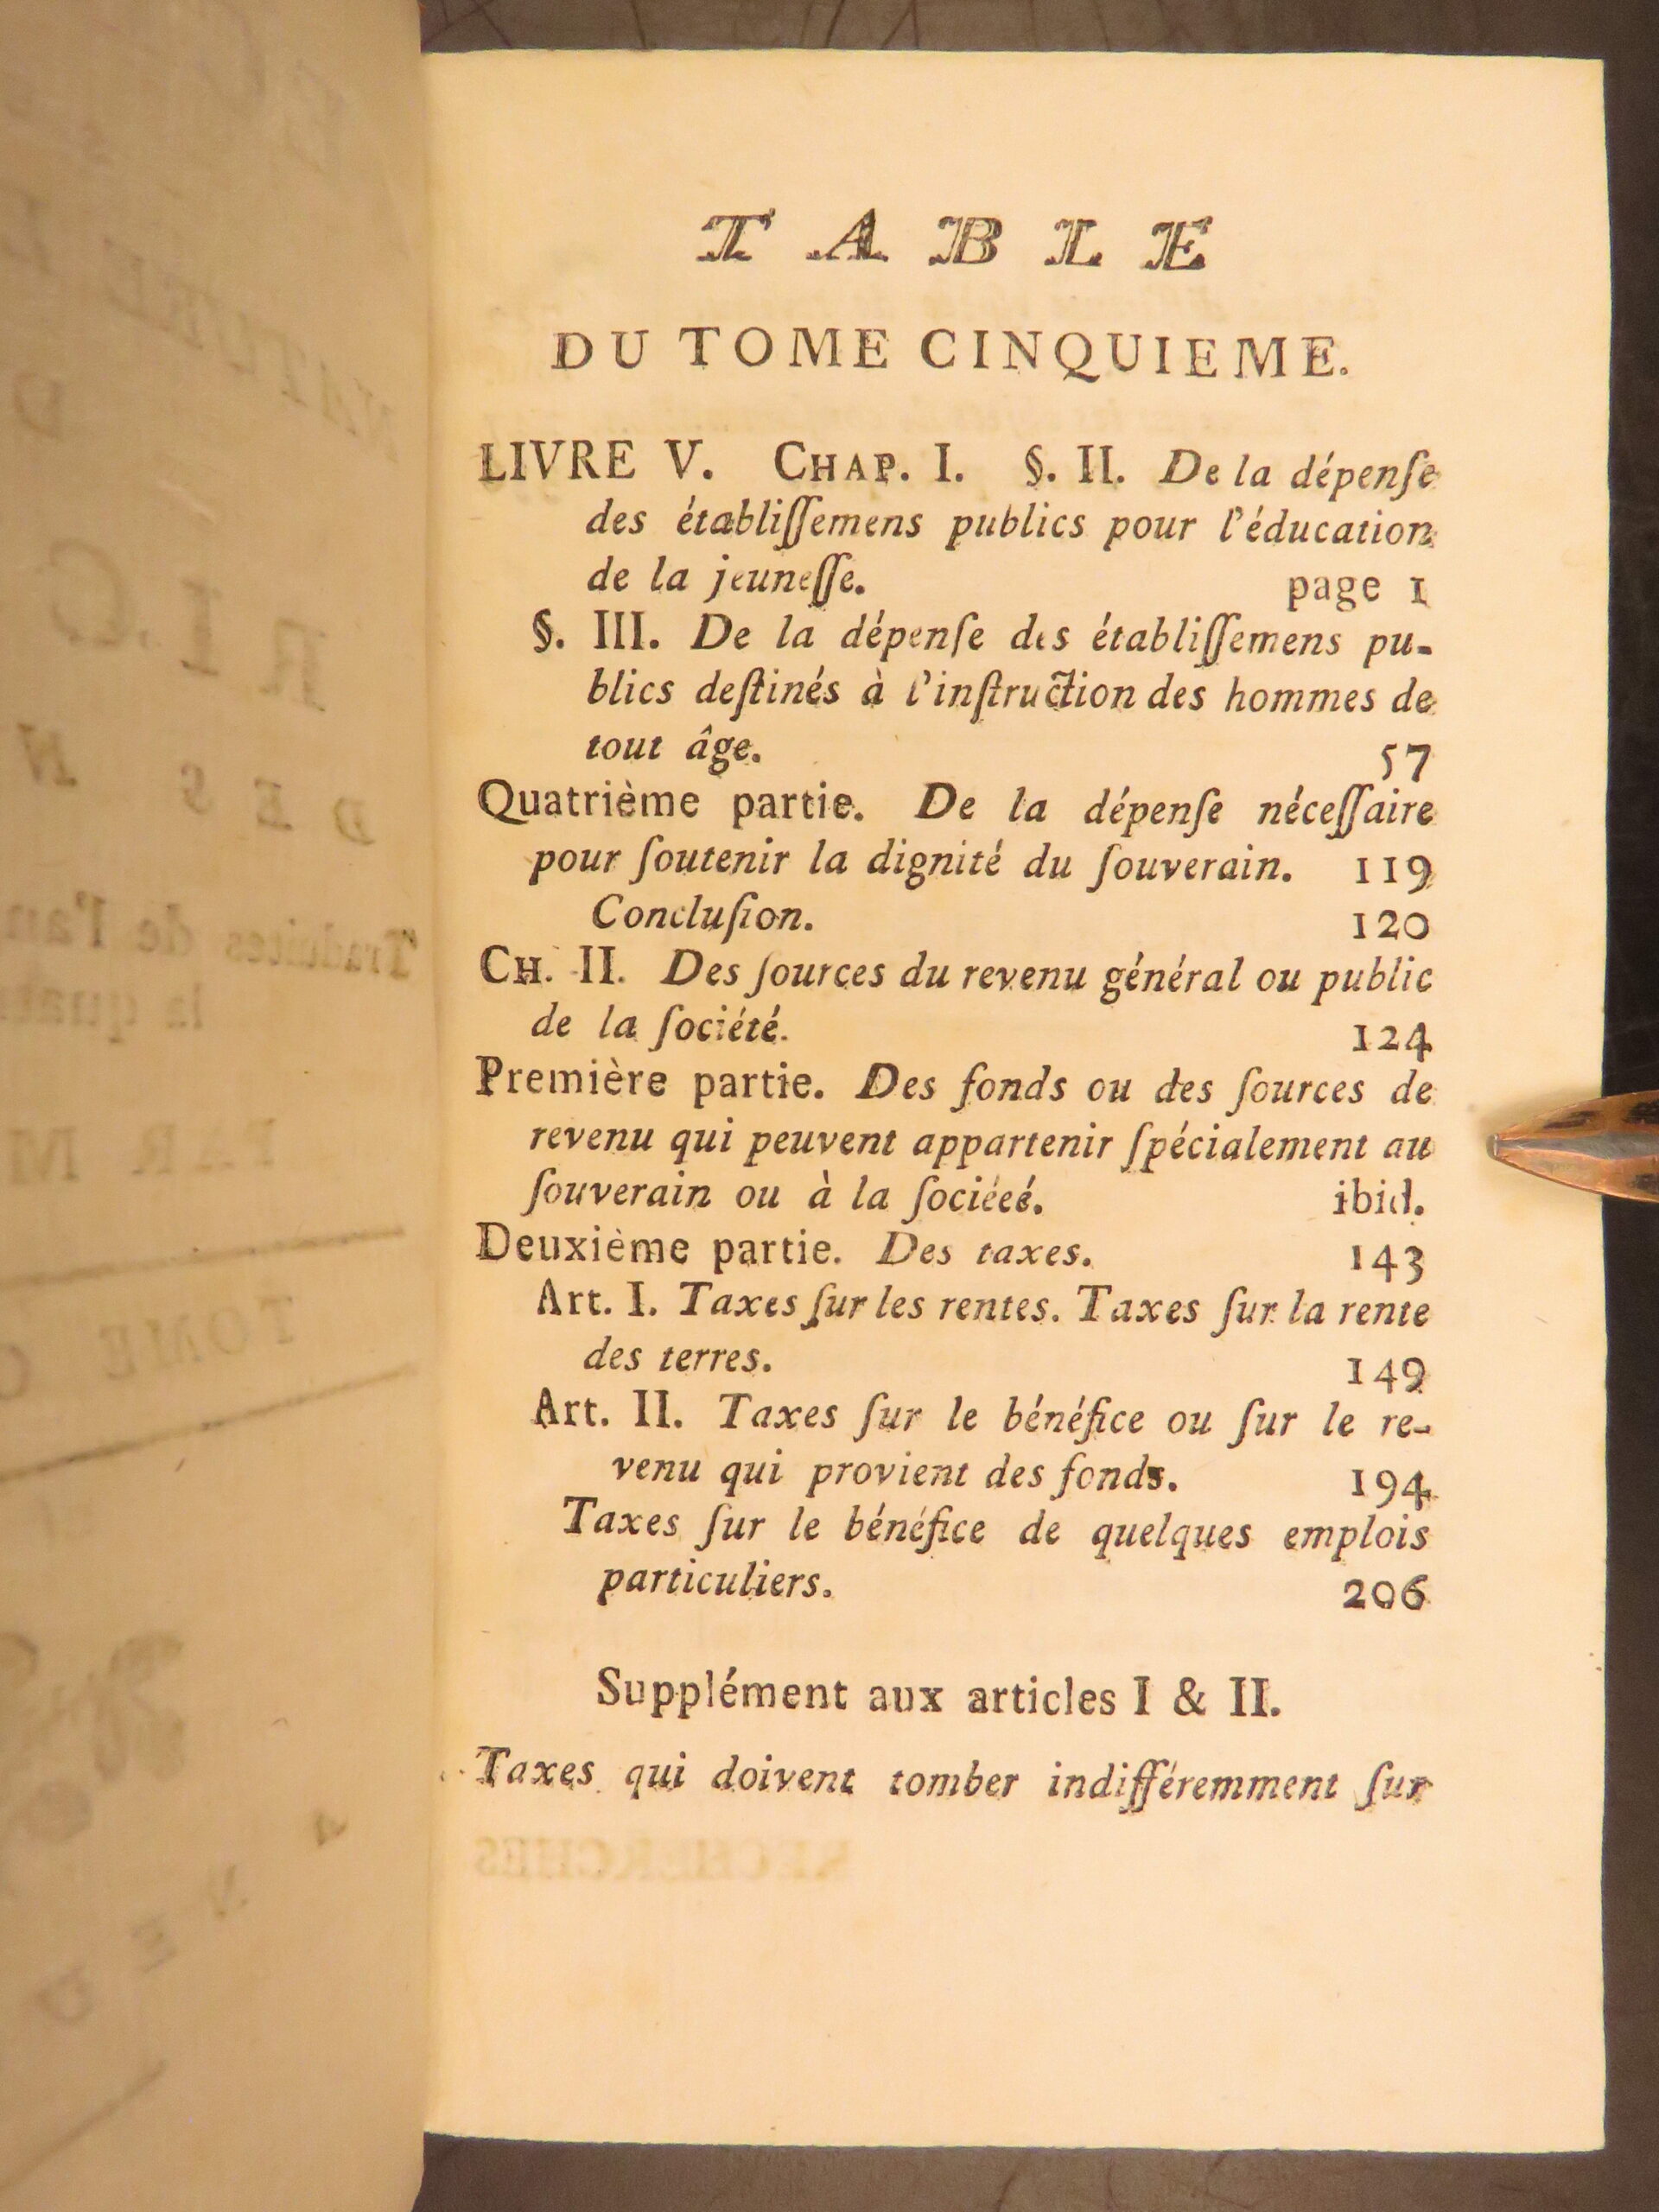 TABLE
DU TOME CINQUIEME.
LIVRE V. CHAP. I. §. II. De la dépenſe
des établiſſemens publics pour l'éducation
de la jeuneſſe. page 1
§. III. De la dépenſe des établiſſemens pu-
blics deſtinés à l'inſtruction des hommes de
tout âge. 57
Quatrième partie. De la dépenſe néceſſaire
pour ſoutenir la dignité du ſouverain. 119
Concluſion. 120
CH. II. Des ſources du revenu général ou public
de la ſociété. 124
Première partie. Des fonds ou des ſources de
revenu qui peuvent appartenir ſpécialement au
ſouverain ou à la ſociéeé. ibid.
Deuxième partie. Des taxes. 143
Art. I. Taxes ſur les rentes. Taxes ſur la rente
des terres. 149
Art. II. Taxes ſur le bénéfice ou ſur le re-
venu qui provient des fonds. 194
Taxes ſur le bénéfice de quelques emplois
particuliers. 206
Supplément aux articles I & II.
Taxes qui doivent tomber indifféremment ſur